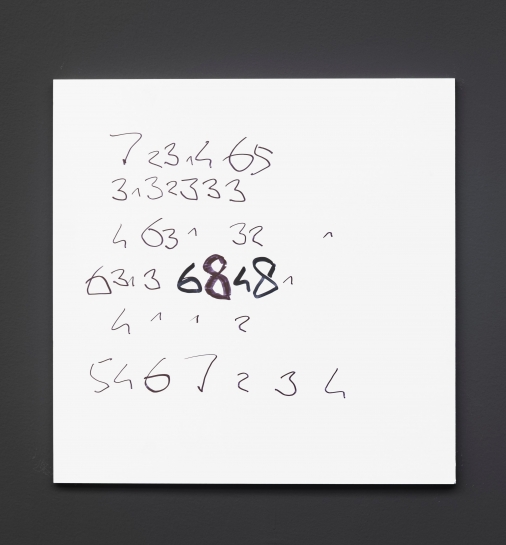 7 2 3 1 4 6 5
3 1 3 2 3 3 3
4 6 3 1 3 2 1
6 3 1 3 6 8 4 8 1
4 1 1 2
5 4 6 7 2 3 4